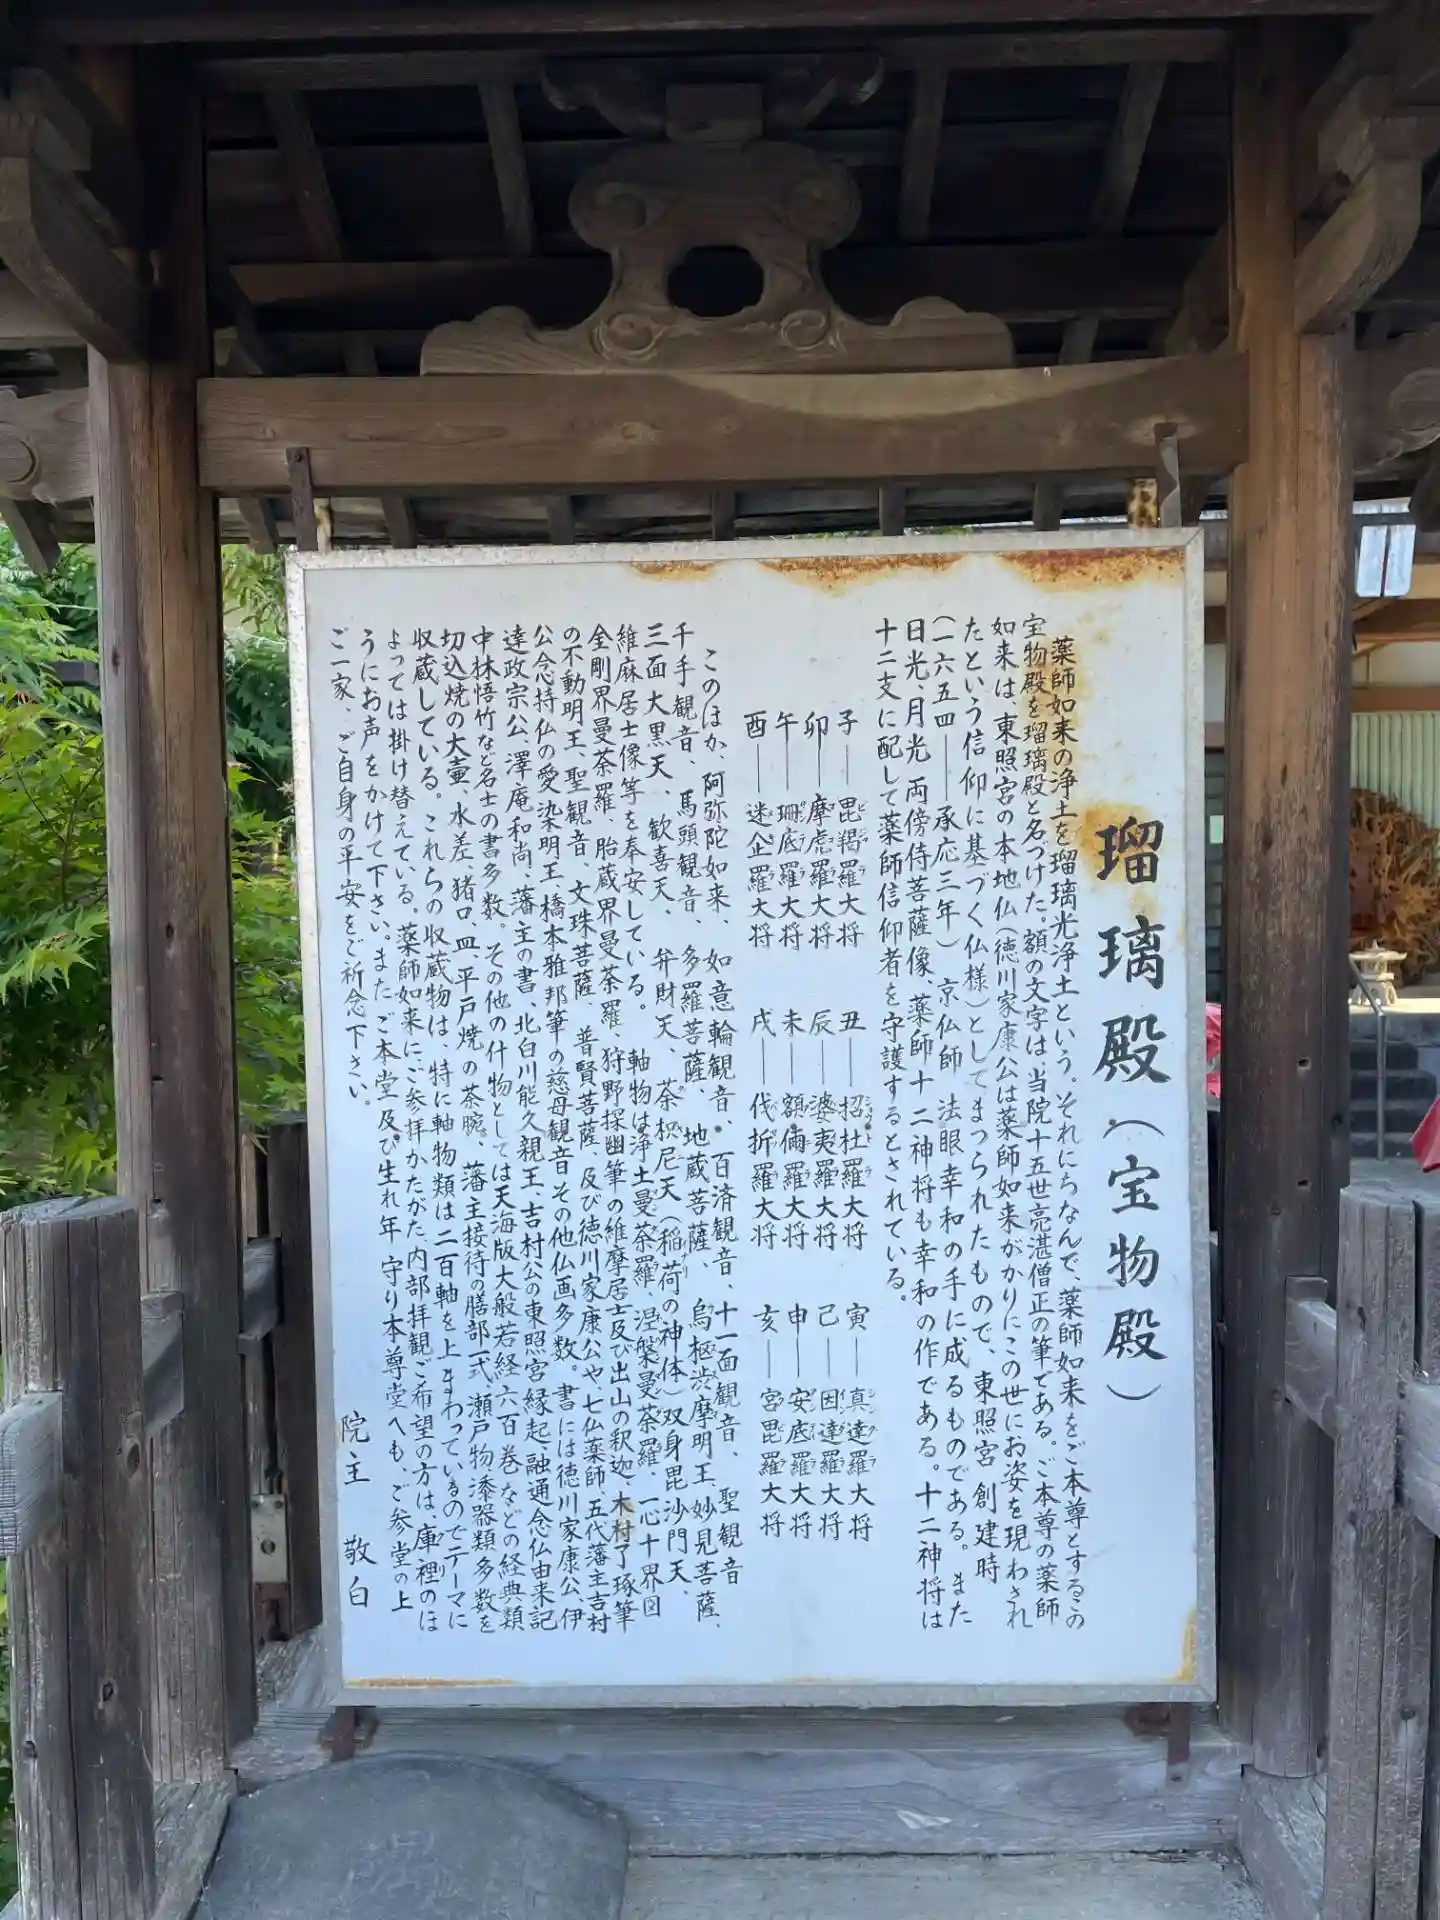 瑠璃殿（宝物殿）
薬師如来の浄土を瑠璃光浄土という。それにちなんで、薬師如来をご本尊とするこの
宝物殿を瑠璃殿と名づけた。額の文字は当院十五世亮湛僧正の筆である。ご本尊の薬師
如来は、東照宮の本地仏（徳川家康公は薬師如来がかりにこの世にお姿を現わされ
たという信仰に基づく仏様）としてまつられたもので、東照宮創建時
（一六五四――承応三年）京仏師 法眼幸和の手に成るものである。また
日光、月光両傍侍菩薩像、薬師十二神将も幸和の作である。十二神将は
十二支に配して薬師信仰者を守護するとされている。
子――毘羯羅大将 丑――招杜羅大将 寅――真達羅大将
卯――摩虎羅大将 辰――婆夷羅大将 己――因達羅大将
午――珊底羅大将 未――額儞羅大将 申――安底羅大将
酉――迷企羅大将 戌――伐折羅大将 亥――宮毘羅大将
このほか、阿弥陀如来、如意輪観音、百済観音、十一面観音、聖観音
千手観音、馬頭観音、多羅菩薩、地蔵菩薩、烏枢渋摩明王、妙見菩薩、
三面大黒天、歓喜天、弁財天、荼枳尼天（稲荷の神体）双身毘沙門天、
維麻居士像等を奉安している。 軸物は浄土曼荼羅、涅槃曼荼羅、一心十界図
金剛界曼荼羅、胎蔵界曼荼羅、狩野探幽筆の維摩居士及び出山の釈迦、木村了琢筆
の不動明王、聖観音、文珠菩薩、普賢菩薩、及び徳川家康公や七仏薬師、五代藩主吉村
公念持仏の愛染明王、橋本雅邦筆の慈母観音その他仏画多数。書には徳川家康公、伊
達政宗公、澤庵和尚、藩主の書、北白川能久親王、吉村公の東照宮縁起、融通念仏由来記
中林悟竹など名士の書多数。その他の什物としては天海版大般若経六百巻などの経典類
切込焼の大壷、水差、猪口、皿、平戸焼の茶腕、藩主接待の膳部一式、瀬戸物漆器類多数を
収蔵している。これらの収蔵物は、特に軸物類は二百軸を上まわっているのでテーマに
よっては掛け替えている。薬師如来に、ご参拝かたがた、内部拝観ご希望の方は、庫裡のほ
うにお声をかけて下さい。またご本堂及び生れ年守り本尊堂へも、ご参堂の上
ご一家、ご自身の平安をご祈念下さい。
院主 敬白